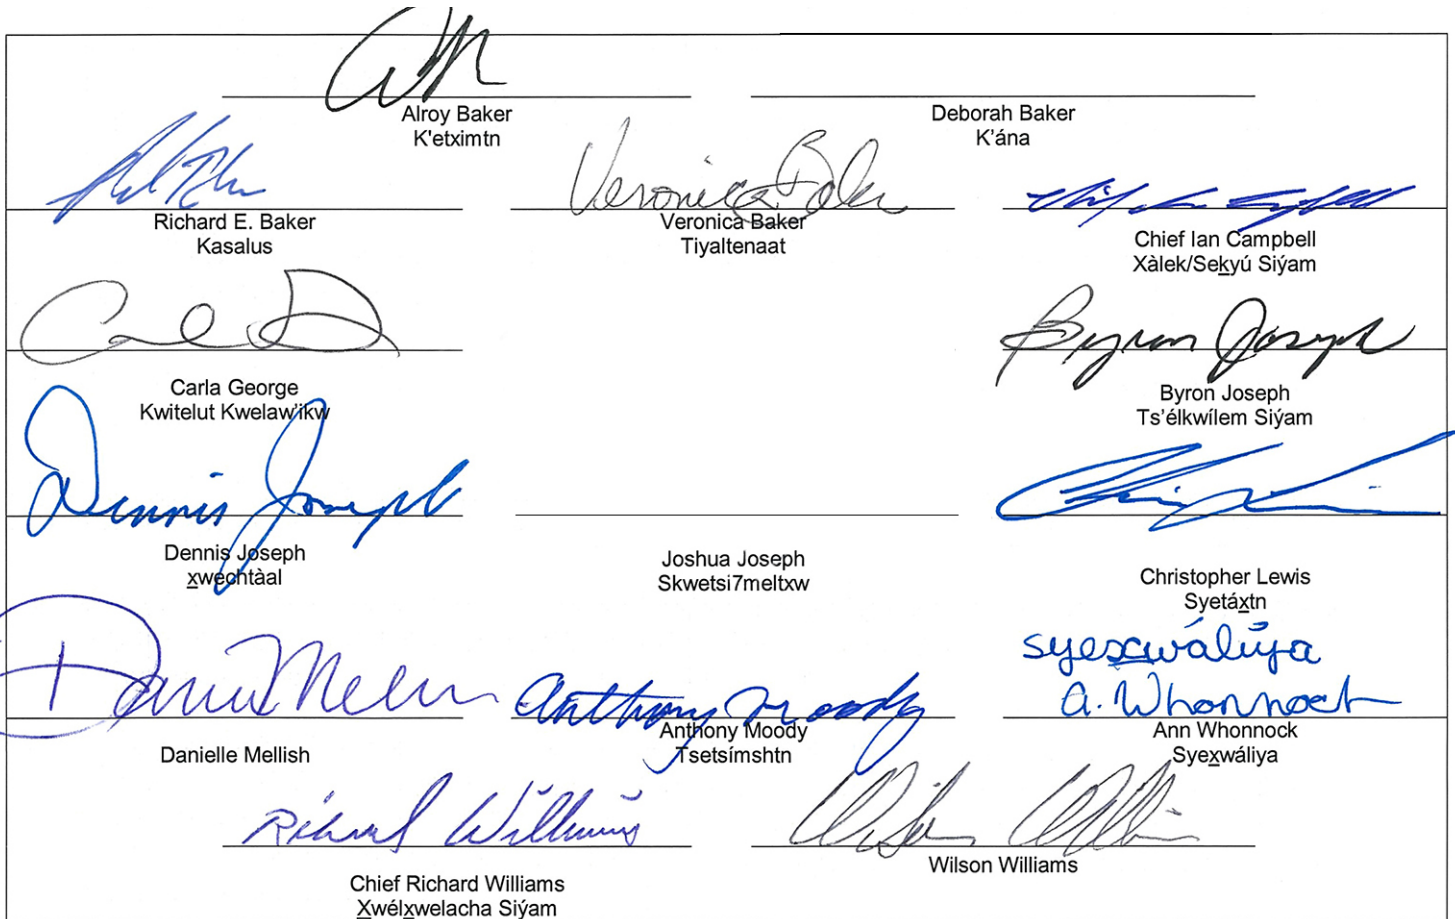 Alroy Baker
K'etximtn
Deborah Baker
K'ána
Richard E. Baker
Kasalus
Veronica Baker
Veronica Baker
Tiyaltenaat
Chief Ian Campbell
Xàlek/Seḵyú Siýam
Carla George
Kwitelut Kwelaw'ikw
Byron Joseph
Byron Joseph
Ts'élkwílem Siýam
Dennis Joseph
Dennis Joseph
x̱wechtàal
Joshua Joseph
Skwetsi7meltxw
Christopher Lewis
Syetáx̱tn
Danielle Mellish
Anthony Moody
Anthony Moody
Tsetsímshtn
syex̱wáliya
A. Whonnock
Ann Whonnock
Syex̱wáliya
Richard Williams
Chief Richard Williams
X̱wélx̱welacha Siýam
Wilson Williams
Wilson Williams